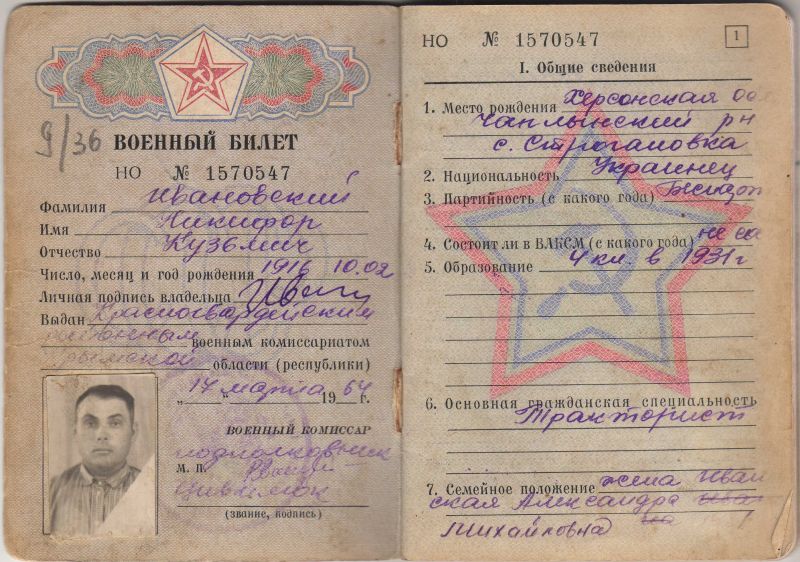 9/36
ВОЕННЫЙ БИЛЕТ
НО № 1570547
Фамилия Ивановский
Имя Никифор
Отчество Кузьмич
Число, месяц и год рождения 1916 10.02
Личная подпись владельца
Выдан Красногвардейским
районным военным комиссариатом
Крымской области (республики)
„17 марта 1964 г.
ВОЕННЫЙ КОМИССАР
подполковник
М. П.
(звание, подпись)
НО № 1570547
1
I. Общие сведения
1. Место рождения Херсонская обл
Чаплынский рн
с. Строгановка
2. Национальность Украинец
3. Партийность (с какого года)
4. Состоит ли в ВЛКСМ (с какого года) не со
5. Образование 4 кл в 1931 г
6. Основная гражданская специальность
Тракторист
7. Семейное положение жена Иван
ская Александра
Михайловна